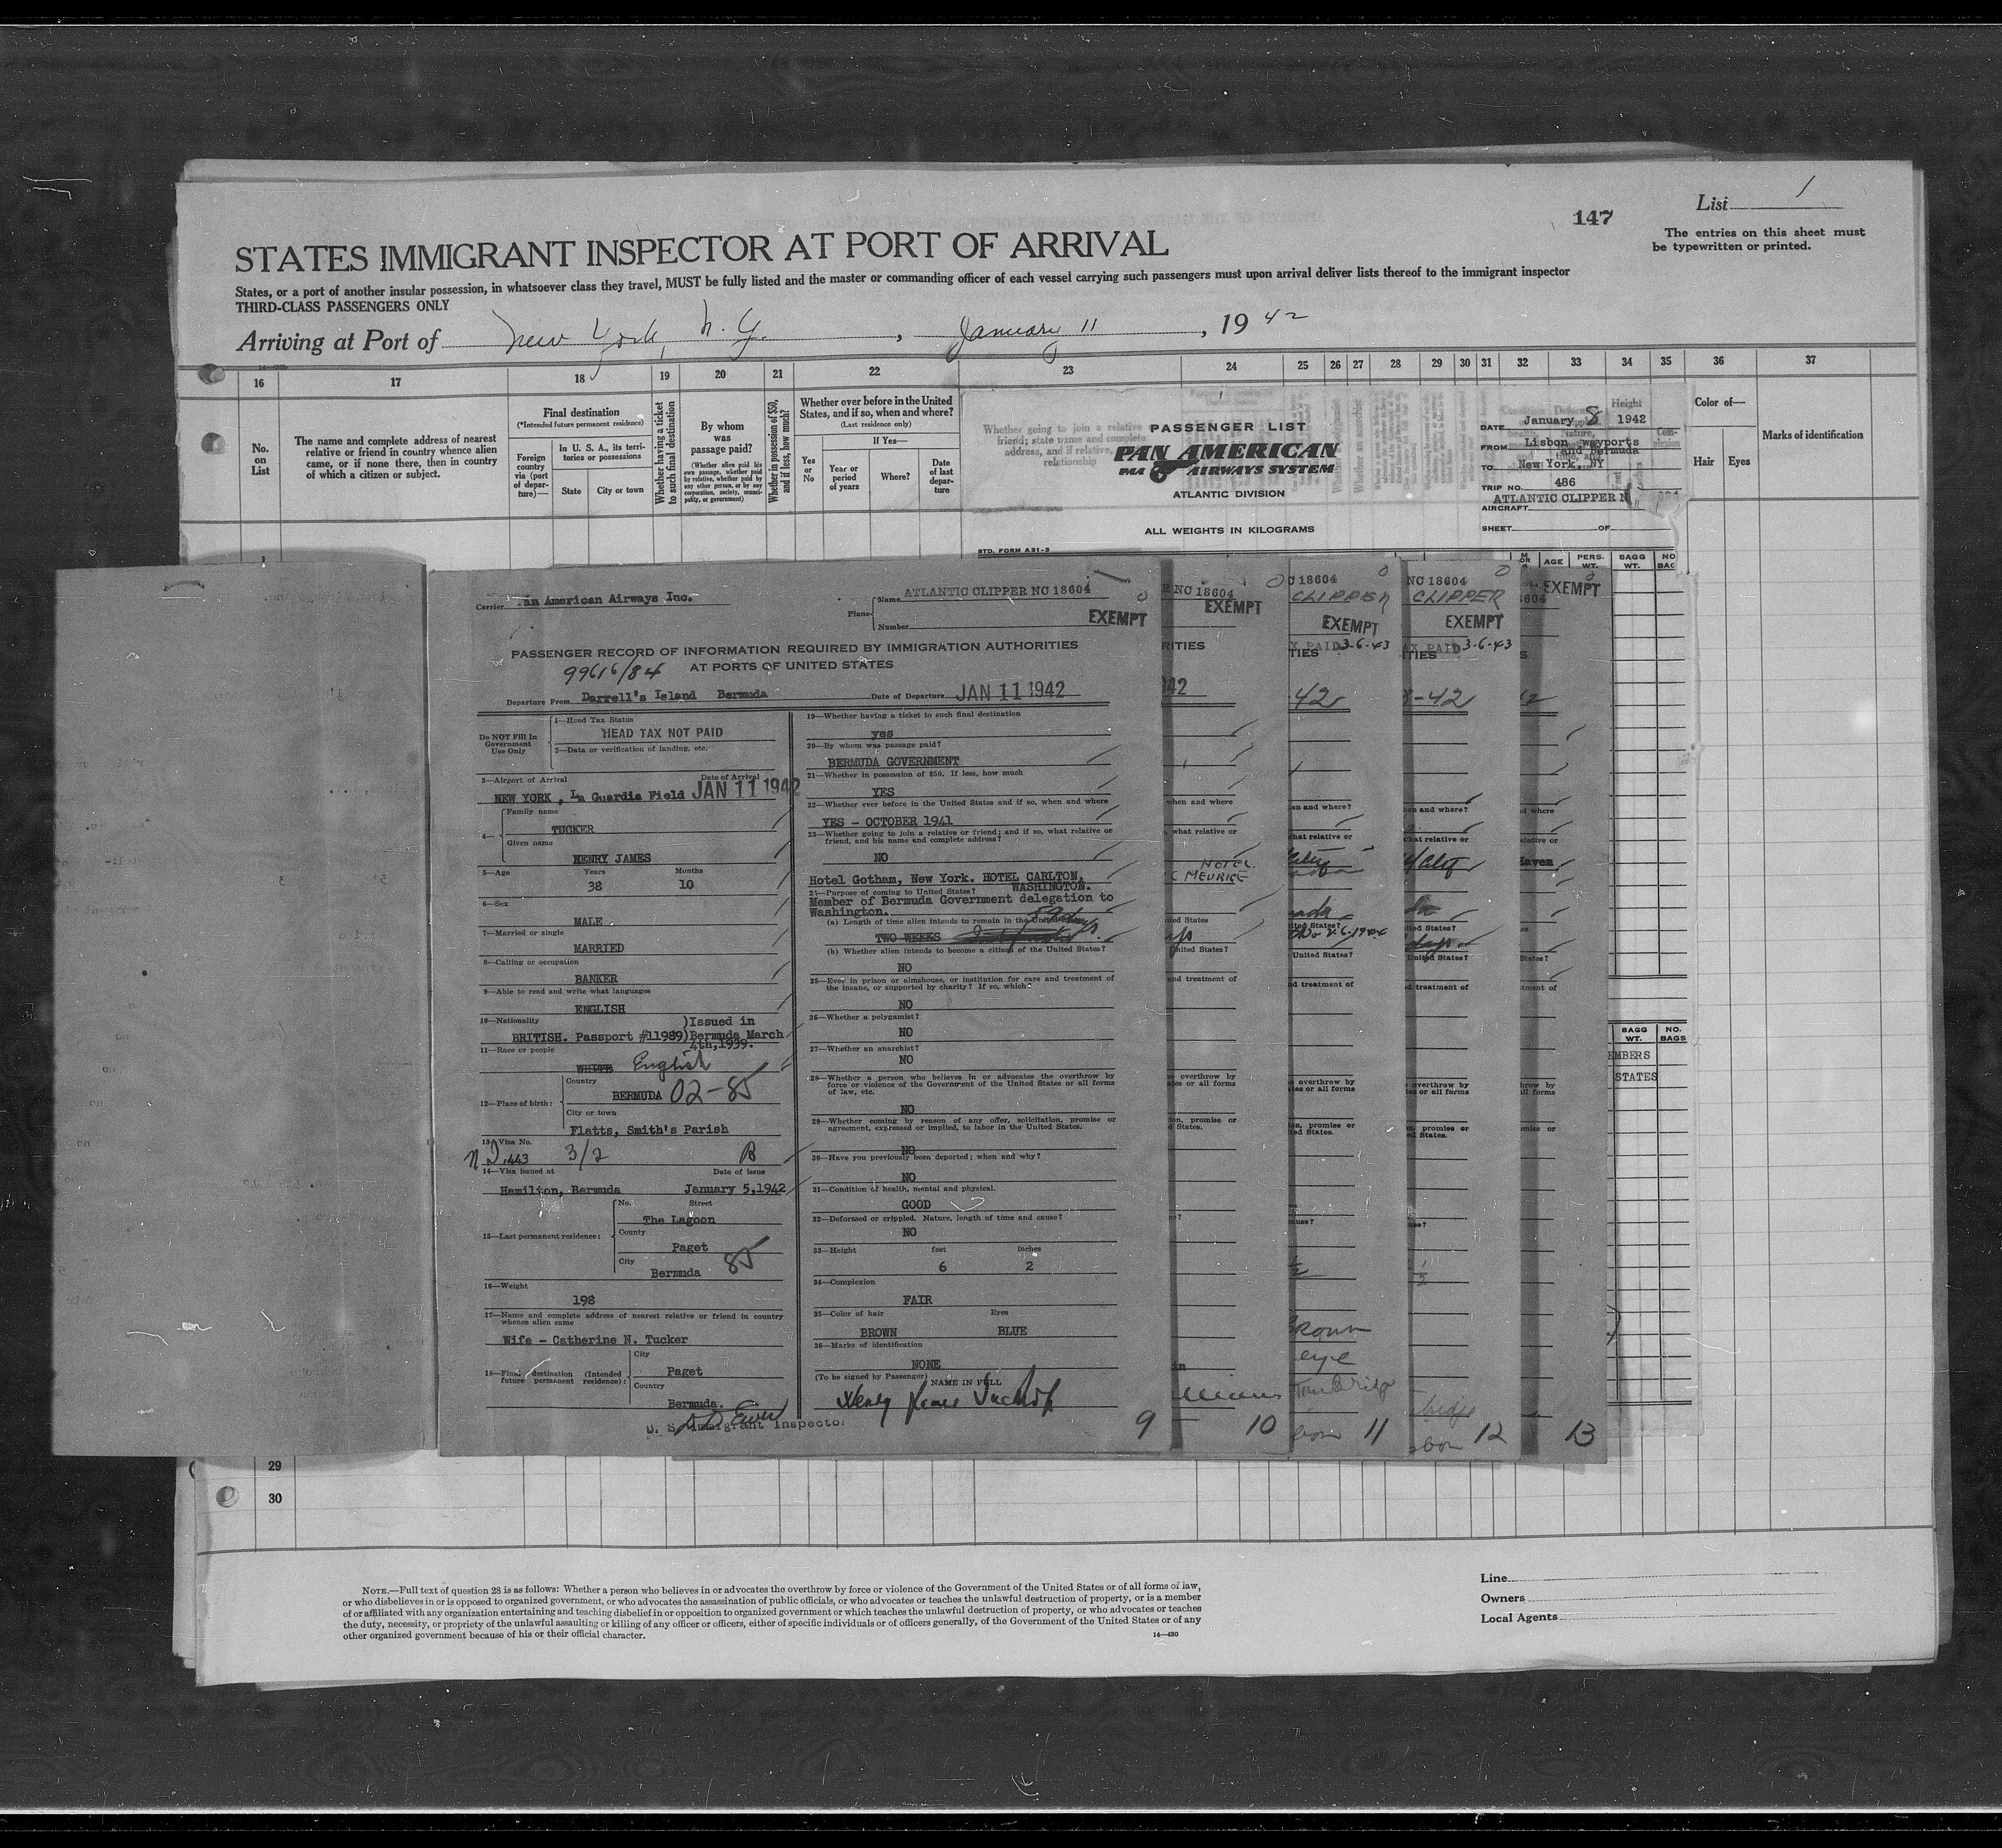 147
List 1
The entries on this sheet must
be typewritten or printed.
STATES IMMIGRANT INSPECTOR AT PORT OF ARRIVAL
States, or a port of another insular possession, in whatsoever class they travel, MUST be fully listed and the master or commanding officer of each vessel carrying such passengers must upon arrival deliver lists thereof to the immigrant inspector
THIRD-CLASS PASSENGERS ONLY
Arriving at Port of New York, N. Y. , January 11 , 19 42
16 17 18 19 20 21 22 23 24 25 26 27 28 29 30 31 32 33 34 35 36 37
No. on List
The name and complete address of nearest
relative or friend in country whence alien
came, or if none there, then in country
of which a citizen or subject.
Final destination
(*Intended future permanent residence)
Foreign country via (port of departure)—
In U. S. A., its territories or possessions
State
City or town
Whether having a ticket to such final destination
By whom was passage paid?
(Whether alien paid his own passage, whether paid by relative, whether paid by any other person, or by any corporation, society, municipality, or government)
Whether in possession of $50, and if less, how much?
Whether ever before in the United
States, and if so, when and where?
(Last residence only)
Yes or No
If Yes—
Year or period of years
Where?
Date of last departure
Whether going to join a relative
friend; state name and complete
address, and if relative,
relationship
Height
Color of—
Hair
Eyes
Marks of identification
PASSENGER LIST
PAN AMERICAN
PAA AIRWAYS SYSTEM
ATLANTIC DIVISION
ALL WEIGHTS IN KILOGRAMS
STD. FORM A31-3
DATE January 8 1942
FROM Lisbon, wayports
and Bermuda
TO New York, NY
TRIP NO. 486
ATLANTIC CLIPPER
AIRCRAFT
SHEET OF
AGE PERS. WT. BAGG WT.
Carrier Pan American Airways Inc.
Plane
Name ATLANTIC CLIPPER NC 18604
Number
EXEMPT
PASSENGER RECORD OF INFORMATION REQUIRED BY IMMIGRATION AUTHORITIES
99616/84 AT PORTS OF UNITED STATES
Departure From Darrell's Island Bermuda Date of Departure JAN 11 1942
Do NOT Fill In
Government
Use Only
1—Head Tax Status
HEAD TAX NOT PAID
2—Data or verification of landing, etc.
3—Airport of Arrival Date of Arrival
NEW YORK, La Guardia Field JAN 11 1942
4—
Family name
TUCKER
Given name
HENRY JAMES
5—Age Years Months
38 10
6—Sex
MALE
7—Married or single
MARRIED
8—Calling or occupation
BANKER
9—Able to read and write what languages
ENGLISH
10—Nationality )Issued in
BRITISH. Passport #11989)Bermuda March
4th,1939.
11—Race or people
WHITE English
12—Place of birth:
Country
BERMUDA 02-85
City or town
Flatts, Smith's Parish
13—Visa No.
443 3/2 B
14—Visa issued at Date of issue
Hamilton, Bermuda January 5,1942
15—Last permanent residence:
No. Street
The Lagoon
County
Paget
City
Bermuda 85
16—Weight
198
17—Name and complete address of nearest relative or friend in country
whence alien came
Wife - Catherine N. Tucker
18—Final destination (Intended
future permanent residence):
City
Paget
Country
Bermuda.
U. S. Immigrant Inspector
19—Whether having a ticket to such final destination
yes
20—By whom was passage paid?
BERMUDA GOVERNMENT
21—Whether in possession of $50. If less, how much
YES
22—Whether ever before in the United States and if so, when and where
YES - OCTOBER 1941
23—Whether going to join a relative or friend; and if so, what relative or
friend, and his name and complete address?
NO
Hotel Gotham, New York. HOTEL CARLTON,
WASHINGTON.
24—Purpose of coming to United States?
Member of Bermuda Government delegation to
Washington.
(a) Length of time alien intends to remain in the United States
TWO WEEKS
(b) Whether alien intends to become a citizen of the United States?
NO
25—Ever in prison or almshouse, or institution for care and treatment of
the insane, or supported by charity? If so, which?
NO
26—Whether a polygamist?
NO
27—Whether an anarchist?
NO
28—Whether a person who believes in or advocates the overthrow by
force or violence of the Government of the United States or all forms
of law, etc.
NO
29—Whether coming by reason of any offer, solicitation, promise or
agreement, expressed or implied, to labor in the United States.
NO
30—Have you previously been deported; when and why?
NO
31—Condition of health, mental and physical.
GOOD
32—Deformed or crippled. Nature, length of time and cause?
NO
33—Height feet inches
6 2
34—Complexion
FAIR
35—Color of hair Eyes
BROWN BLUE
36—Marks of identification
NONE
(To be signed by Passenger) NAME IN FULL
Henry James Tucker
9 10 11 12 13
NC 18604
EXEMPT
HOTEL
MEURICE
NC 18604
CLIPPER
EXEMPT
3-6-43
NC 18604
CLIPPER
EXEMPT
3-6-43
EXEMPT
Haven
Brown
eye
BAGG WT. NO. BAGS
EMBERS
STATES
29
30
NOTE.—Full text of question 28 is as follows: Whether a person who believes in or advocates the overthrow by force or violence of the Government of the United States or of all forms of law,
or who disbelieves in or is opposed to organized government, or who advocates the assassination of public officials, or who advocates or teaches the unlawful destruction of property, or is a member
of or affiliated with any organization entertaining and teaching disbelief in or opposition to organized government or which teaches the unlawful destruction of property, or who advocates or teaches
the duty, necessity, or propriety of the unlawful assaulting or killing of any officer or officers, either of specific individuals or of officers generally, of the Government of the United States or of any
other organized government because of his or their official character.
14—430
Line
Owners
Local Agents